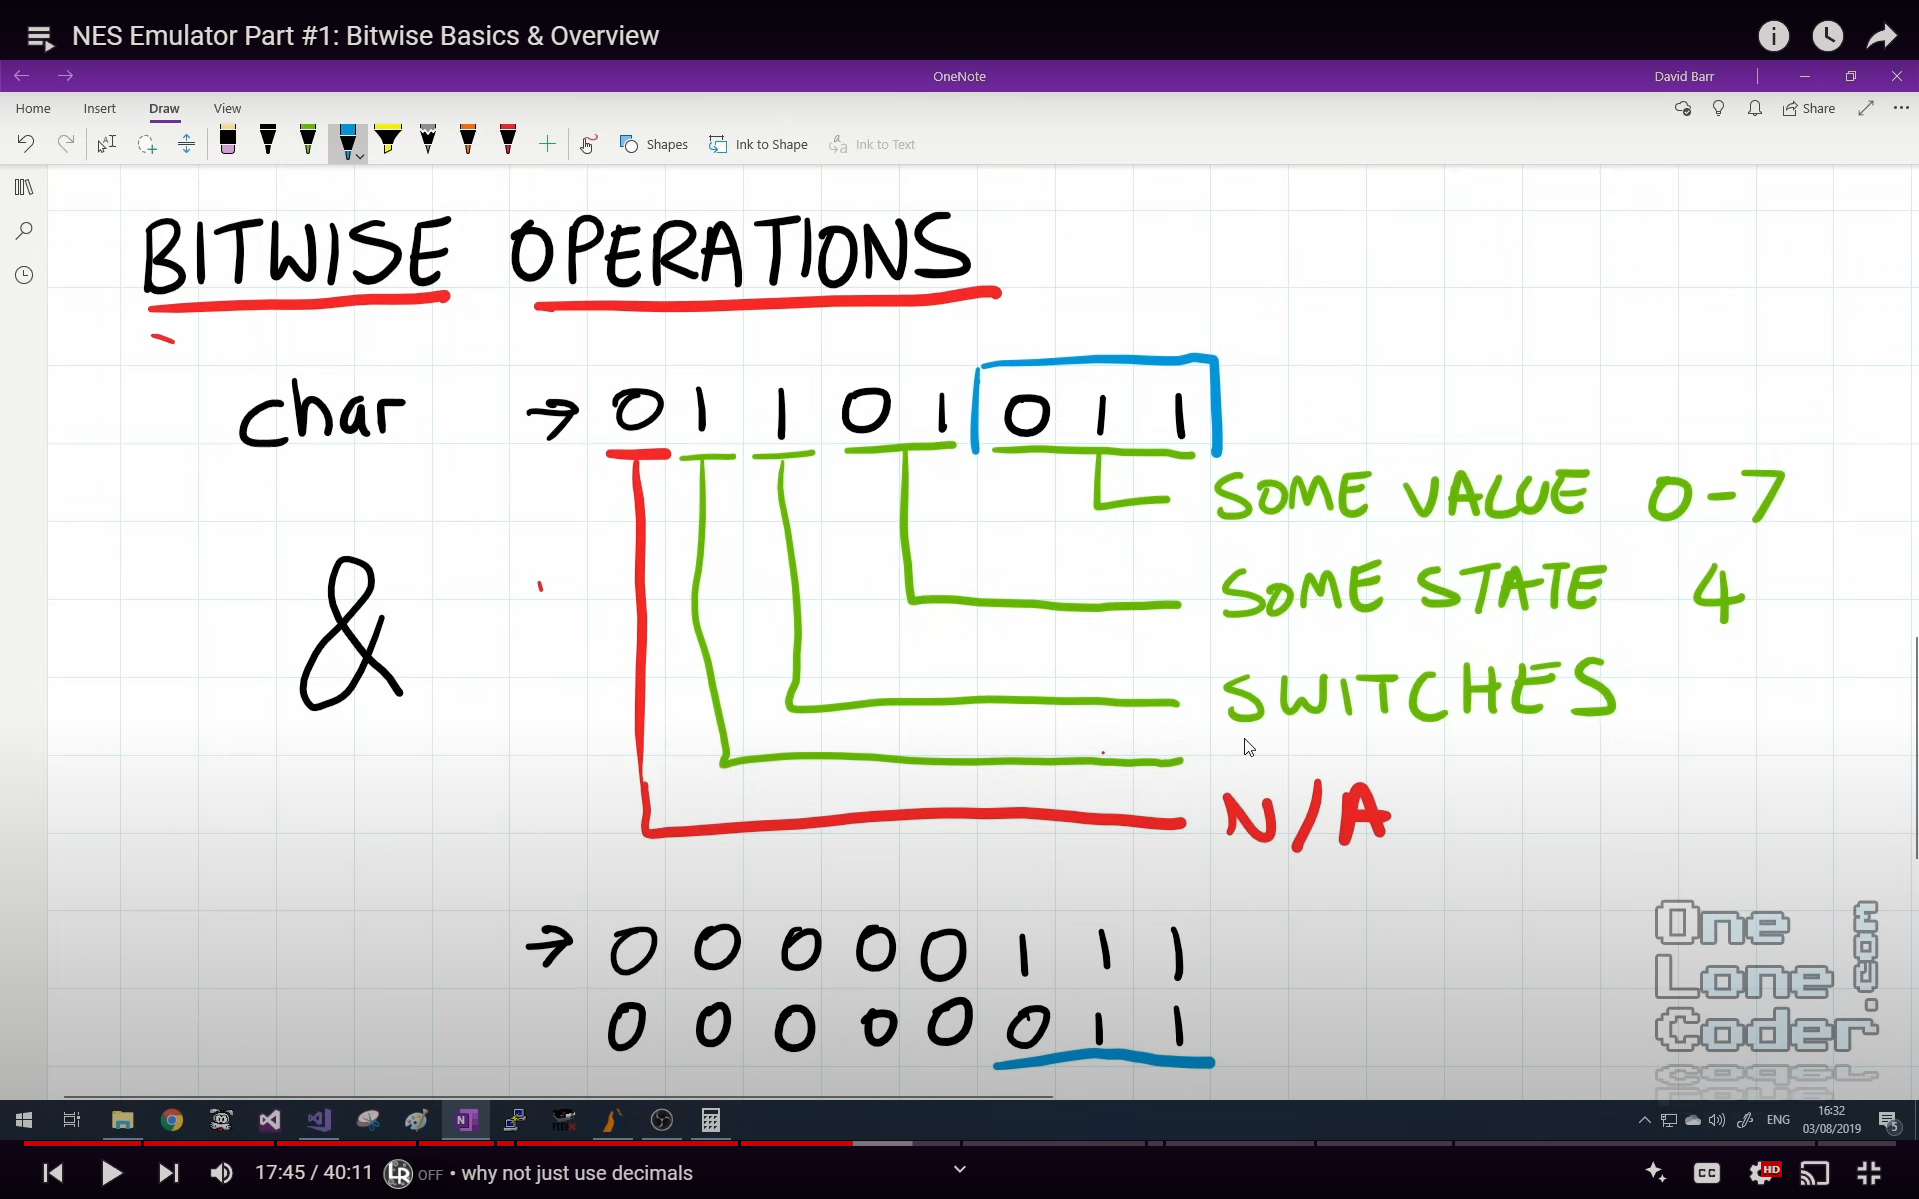 NES Emulator Part #1: Bitwise Basics & Overview
OneNote
David Barr
Home Insert Draw View
Share
Shapes Ink to Shape Ink to Text
BITWISE OPERATIONS
char → 0 1 1 0 1 0 1 1
SOME VALUE 0-7
&
SOME STATE 4
SWITCHES
N/A
→ 0 0 0 0 0 1 1 1
0 0 0 0 0 0 1 1
One
Lone
Coder
.com
ENG
16:32
03/08/2019
5
17:45 / 40:11 LR OFF • why not just use decimals
CC
HD